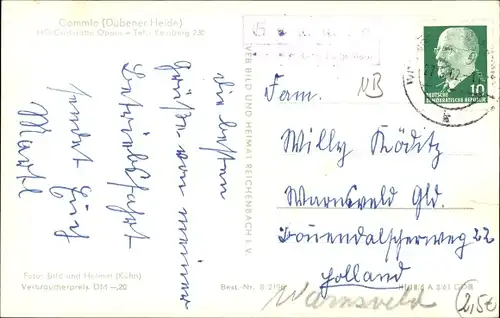 Gommlo (Dübener Heide)
HO-Gaststätte Oppin – Tel.: Kemberg 230
die besten
Grüße von meiner
Betriebsfahrt
sendet Euch
Foto: Bild und Heimat (Kühn)
Verbraucherpreis DM –,20
VEB BILD UND HEIMAT REICHENBACH i. V.
Best.-Nr. B 219
DEUTSCHE
DEMOKRATISCHE REPUBLIK
10
NB
Fam.
Willy Köditz
Warnsveld Gld.
Bouendalscherweg 22
Holland
Warnsveld
2,50